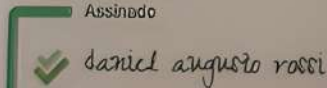 Assinado
daniel augusto rossi